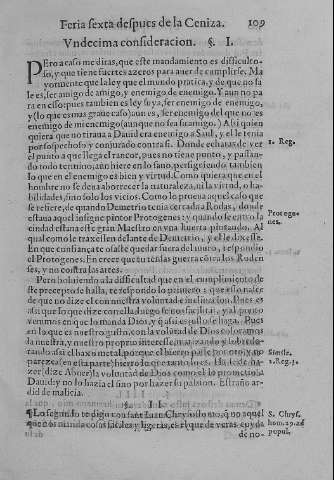 Feria sexta despues de la Ceniza. 109
Vndecima consideracion. §. I.
PEro a caso me diras, que este mandamiento es dificulto-
so, y que tiene fuertes azeros para auer de cumplirse. Ma
yormente que la ley que el mundo pratica, y de que no sa
le es, ser amigo de amigo, y enemigo de enemigo. Y aun no pa
ra en esso: pues tambien es ley suya, ser enemigo de enemigo,
y (lo que es mas graue caso) aun es, ser enemigo del que no es
enemigo de mi enemigo (aunque no sea su amigo.) Assi quien
quiera que no tiraua a Dauid era enemigo a Saul, y el le tenia
por sospechoso y conjurado contra si. Donde echaras de ver
1. Reg.
el punto a que llega el rancor, pues no tiene punto, y passan-
do todo termino, aun hiere en lo sano, persiguiendo tambien
lo que en el enemigo es bien y virtud. Como quiera que en el
hombre no se deua aborrecer la naturaleza, ni la virtud, o ha-
bilidades, sino solo los vicios. Como lo prueua aquel caso que
se refiere, de quando Demetrio tenia cercada a Rodas, donde
estaua aquel insigne pintor Protogenes: y quando se entro la
Protoge-
nes.
ciudad estaua este gran Maestro en vna huerta pintando. Al
qual como le traxessen delante de Demetrio, y el le dixesse.
En que confiança te osaste quedar fuera del muro, respondio
el Protogenes. En creer que tu teniàs guerra cōtra los Roden
ses, y no contra las artes.
Pero boluiendo a la dificultad que en el cumplimiento de
este precepto se halla, te respondo lo primero: que esso nace
de que no dize el con nuestra voluntad e inclinacion. Pues es
assi que lo que dize con ella luego se nos facilita, y al
venimos en que lo manda Dios, y q̃ assi es justo se haga. Pues
en lo que es nuestro gusto, con la volūtad de Dios
la nuestra, y nuestro proprio interesse,
rando assi el baxo metal, porque el hierro parte por oro, y no
Simile.
parezca (en esta parte) hierro lo que tanto lo es.
1. Reg.
(dize Abner) la voluntad de Dios como el lo prometio a
Dauid y no lo hazia el sino por hazer su passion. Estraño ar-
did de malicia.
§. II.
¶Lo segundo te digo con sant Iuan Chrysostomo, q̃ no aquel
S. Chrys.
que nos manda cosas faciles y ligeras, es el que de veras ayuda
hom.
popul.
de no-